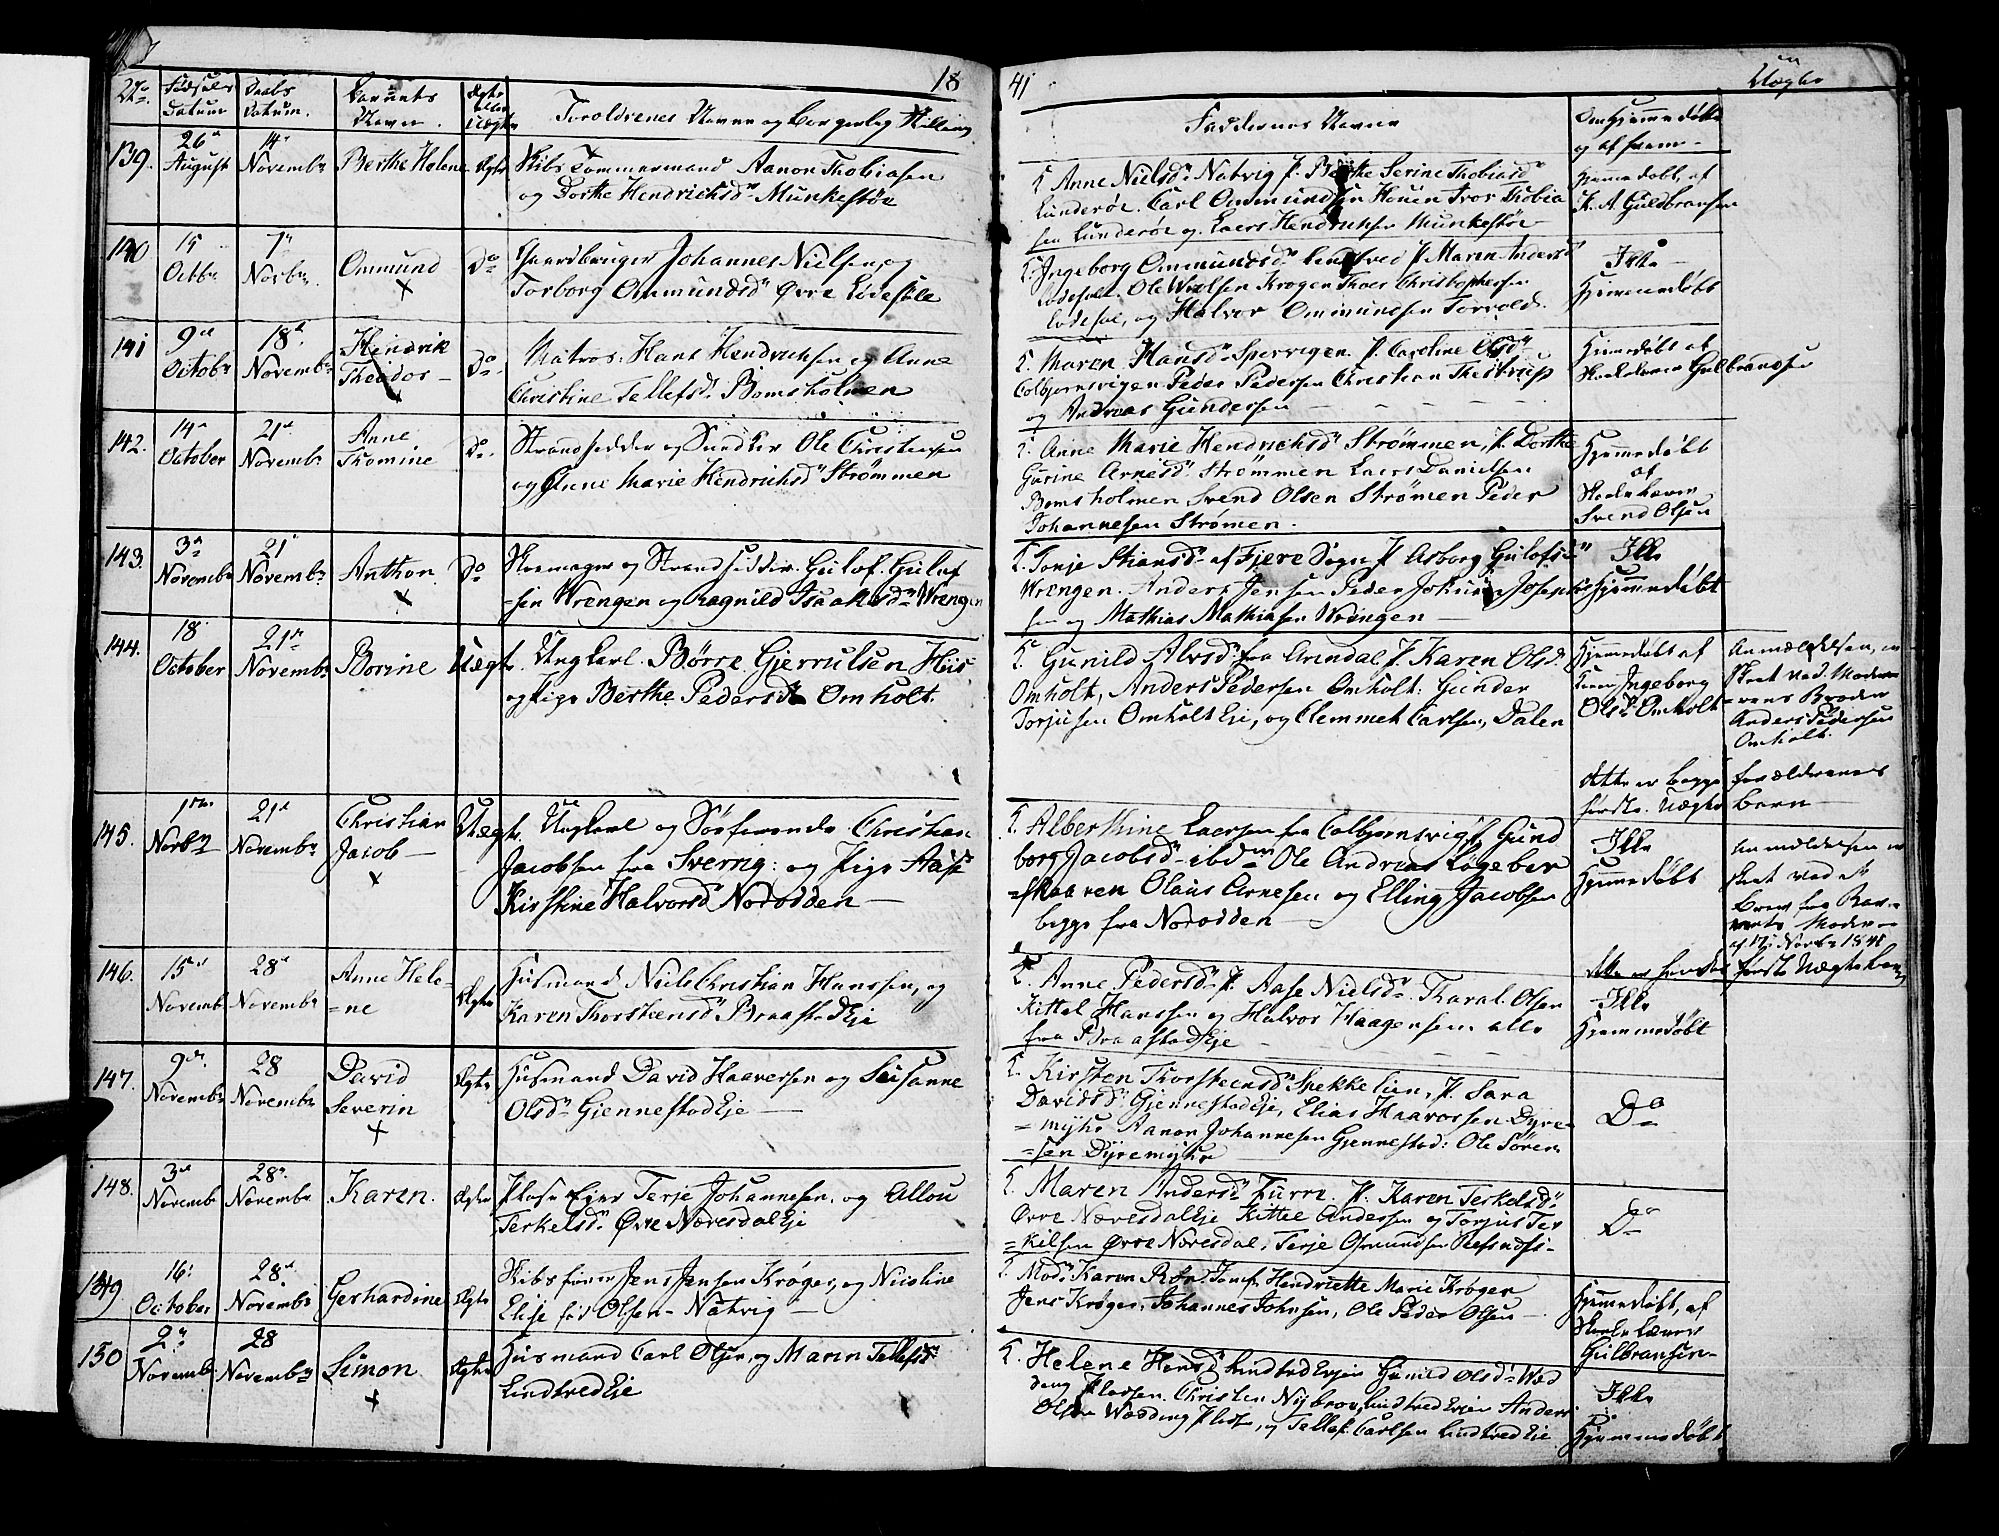 18 41
No. Fødsels Datum Daabs Datum. Barnets Navn. Ægte eller Uægte Forældrenes Navne og Borgerlig Stilling
Faddernes Navne Om hjemmedøbt og af hvem
Uægte
139. 26 August 14 Novembr Berthe Helene Ægte Skibs Tømmermand Aanon Thobiasen
og Dorthe Hendrichsd. Munkestøe
Anne Nielsd. Natvig P. Berthe Serine Thobiasd.
Lunderøe. Carl Ommundsen Houen Tobia
sen Lunderøe og Laers Hendrichsen Munkestøe
hjemmedøbt af
K. A. Guldbransen
140 15 Octbr 7 Novbr. Ommund Do Gaardbruger Johannes Nielsen og
Torborg Ommundsd. Øvre Lødesøle
Ingeborg Ommundsd. P. Maren Andersd.
Lødesøl. Ole Nielsen Krogen Christophersen
Lødesøl, og Halvor Ommundsen Torvold.
Ikke
Hjemmedøbt
141 9de Octobr 18 Novembr Hendrik
Theodor Do. Matros Hans Hendrichsen og Anne
Christine Tellefsd. Bomsholmen
Maren Hansd. Spervigen. P. Caroline Olsd.
Colbjørnsvigen Peder Pedersen Christian Thestrup
og Andreas Gundersen
Hjemedøbt af
Skolelærer Gulbrandsen
142. 14 October 21 Novembr Anne
Thomine Do. Strandsidder og Snedker Ole Christensen
og Anne Marie Hendrichsd. Strømmen
Anne Marie Hendrichsd. Strømmen, P. Dorthe
Gurine Arnesd. Strømmen Laers Danielsen
Bomsholmen Svend Olsen Strømen Peder
Johannesen Strømen.
Hjemmedøbt
af
Skolelærer
Svend Olsen
143. 3 Novembr 21 Novembr Anthon Do Skomager og Strandsidder Gulof Gulof
sen Wrengen og Ragnild Isaaksd. Wrengen
Tonje Stiansd. af Fjere Sogn P. Asborg Gulofsd.
Wrengen. Anders Jensen Peder Johnsen Joseph
sen og Mathias Mathiasen Wrængen
Ikke
Hjemmedøbt
144. 18 October 21 Novembr Borine Uægte. Ungkarl. Børre Gjerrulsen His
og Pige Berthe Pedersd. Omholt.
Gunild Alvsd. fra Arendal, P. Karen Olsd.
Omholt, Anders Pedersen Omholt: Gunder
Torjusen Omholt Eje, og Clemmet Carlsen, Dalen
Hjemmedøbt af
Ingeborg
Olsd. Omholt
Anmældelsen er
skeet ved Mode
rens Broder
Anders Pedersen
Omholt.
dette er begge forældrenes
første Uægte Barn
145. 1ste Novbr 21 Novembr Christian
Jacob Uægte Ungkarl og Søefarende Christian
Jacobsen fra Sverrig: og Pige Aase
Kirstine Halvorsd. Nordodden
Alberthine Laersen fra Colbjørnsvig P. Gund
borg Jacobsd. ibdm Ole Andreas Løgeber
skaaren Olaus Arnesen og Elling Jacobsen
begge fra Nordodden
Ikke
Hjemedøbt
Anmældelsen er
skeet ved et
Brev fra Bar
nets Moder
af 17 Novbr 1841
dette er hendes første Uægte barn
146. 15 Novemb 28 Novembr Anne Hele-
=ne Ægte Husmand Niels Christian Hanssen, og
Karen Thorstensd. Braastad Eje
Anne Pedersd. P. Aase Nielsd. Tharal. Olsen
Kittel Hanssen og Halvor Haagensen alle
fra Braastad Eje
Ikke
Hjemmedøbt
147. 9de Novembr 28 Novembr David
Severin Ægte Husmand David Haaversen og Susanne
Olsd. Gjennestad Eje
Kirsten Thorsteensd. Spekkelien, P. Sara
Davidsd. Gjennestad Eje, Elias Haavorsen Dyre
=myhr Aanon Johannesen Gjennestad: Ole Søren
=sen Dyremyhr
Do
148. 3de Novemb 28 Novembr Karen. Ægte Plads Ejer Terje Johannesen, og Allou
Terkelsd. Øvre Næresdal Eje
Maren Andersd. Furre. P. Karen Terkelsd.
Øvre Næresdal Eje Kittel Andersen og Torjus Ter
=kilsen Øvre Næresdal, Terje Osmundsen
Do
149 16 October 28 Novembr Gerhardine Ægte Skibsfører Jens Jensen Krøger, og Nicoline
Elise fød Olsen Natvig
Mad. Karen Roe Jomf. Henriette Marie Krøger
Jens Krøger, Johannes Johnsen, Ole Peder Olsen
Hjemmedøbt, af
Skole Lærer
Gulbransen
150 2 Novembr 28 Novembr Simon Ægte Husmand Carl Olsen, og Maren Tellefsd.
Lindtved Eje
Helene Hansd. Lindtved Ejen Gunild Olsd. Wed
ding Pladsen. Christen Nybrou, Lindtved Ejen Anders
Olsen Wædding Plads, og Tellef Carlsen Lindtved Eje
Ikke
Hjemmedøbt